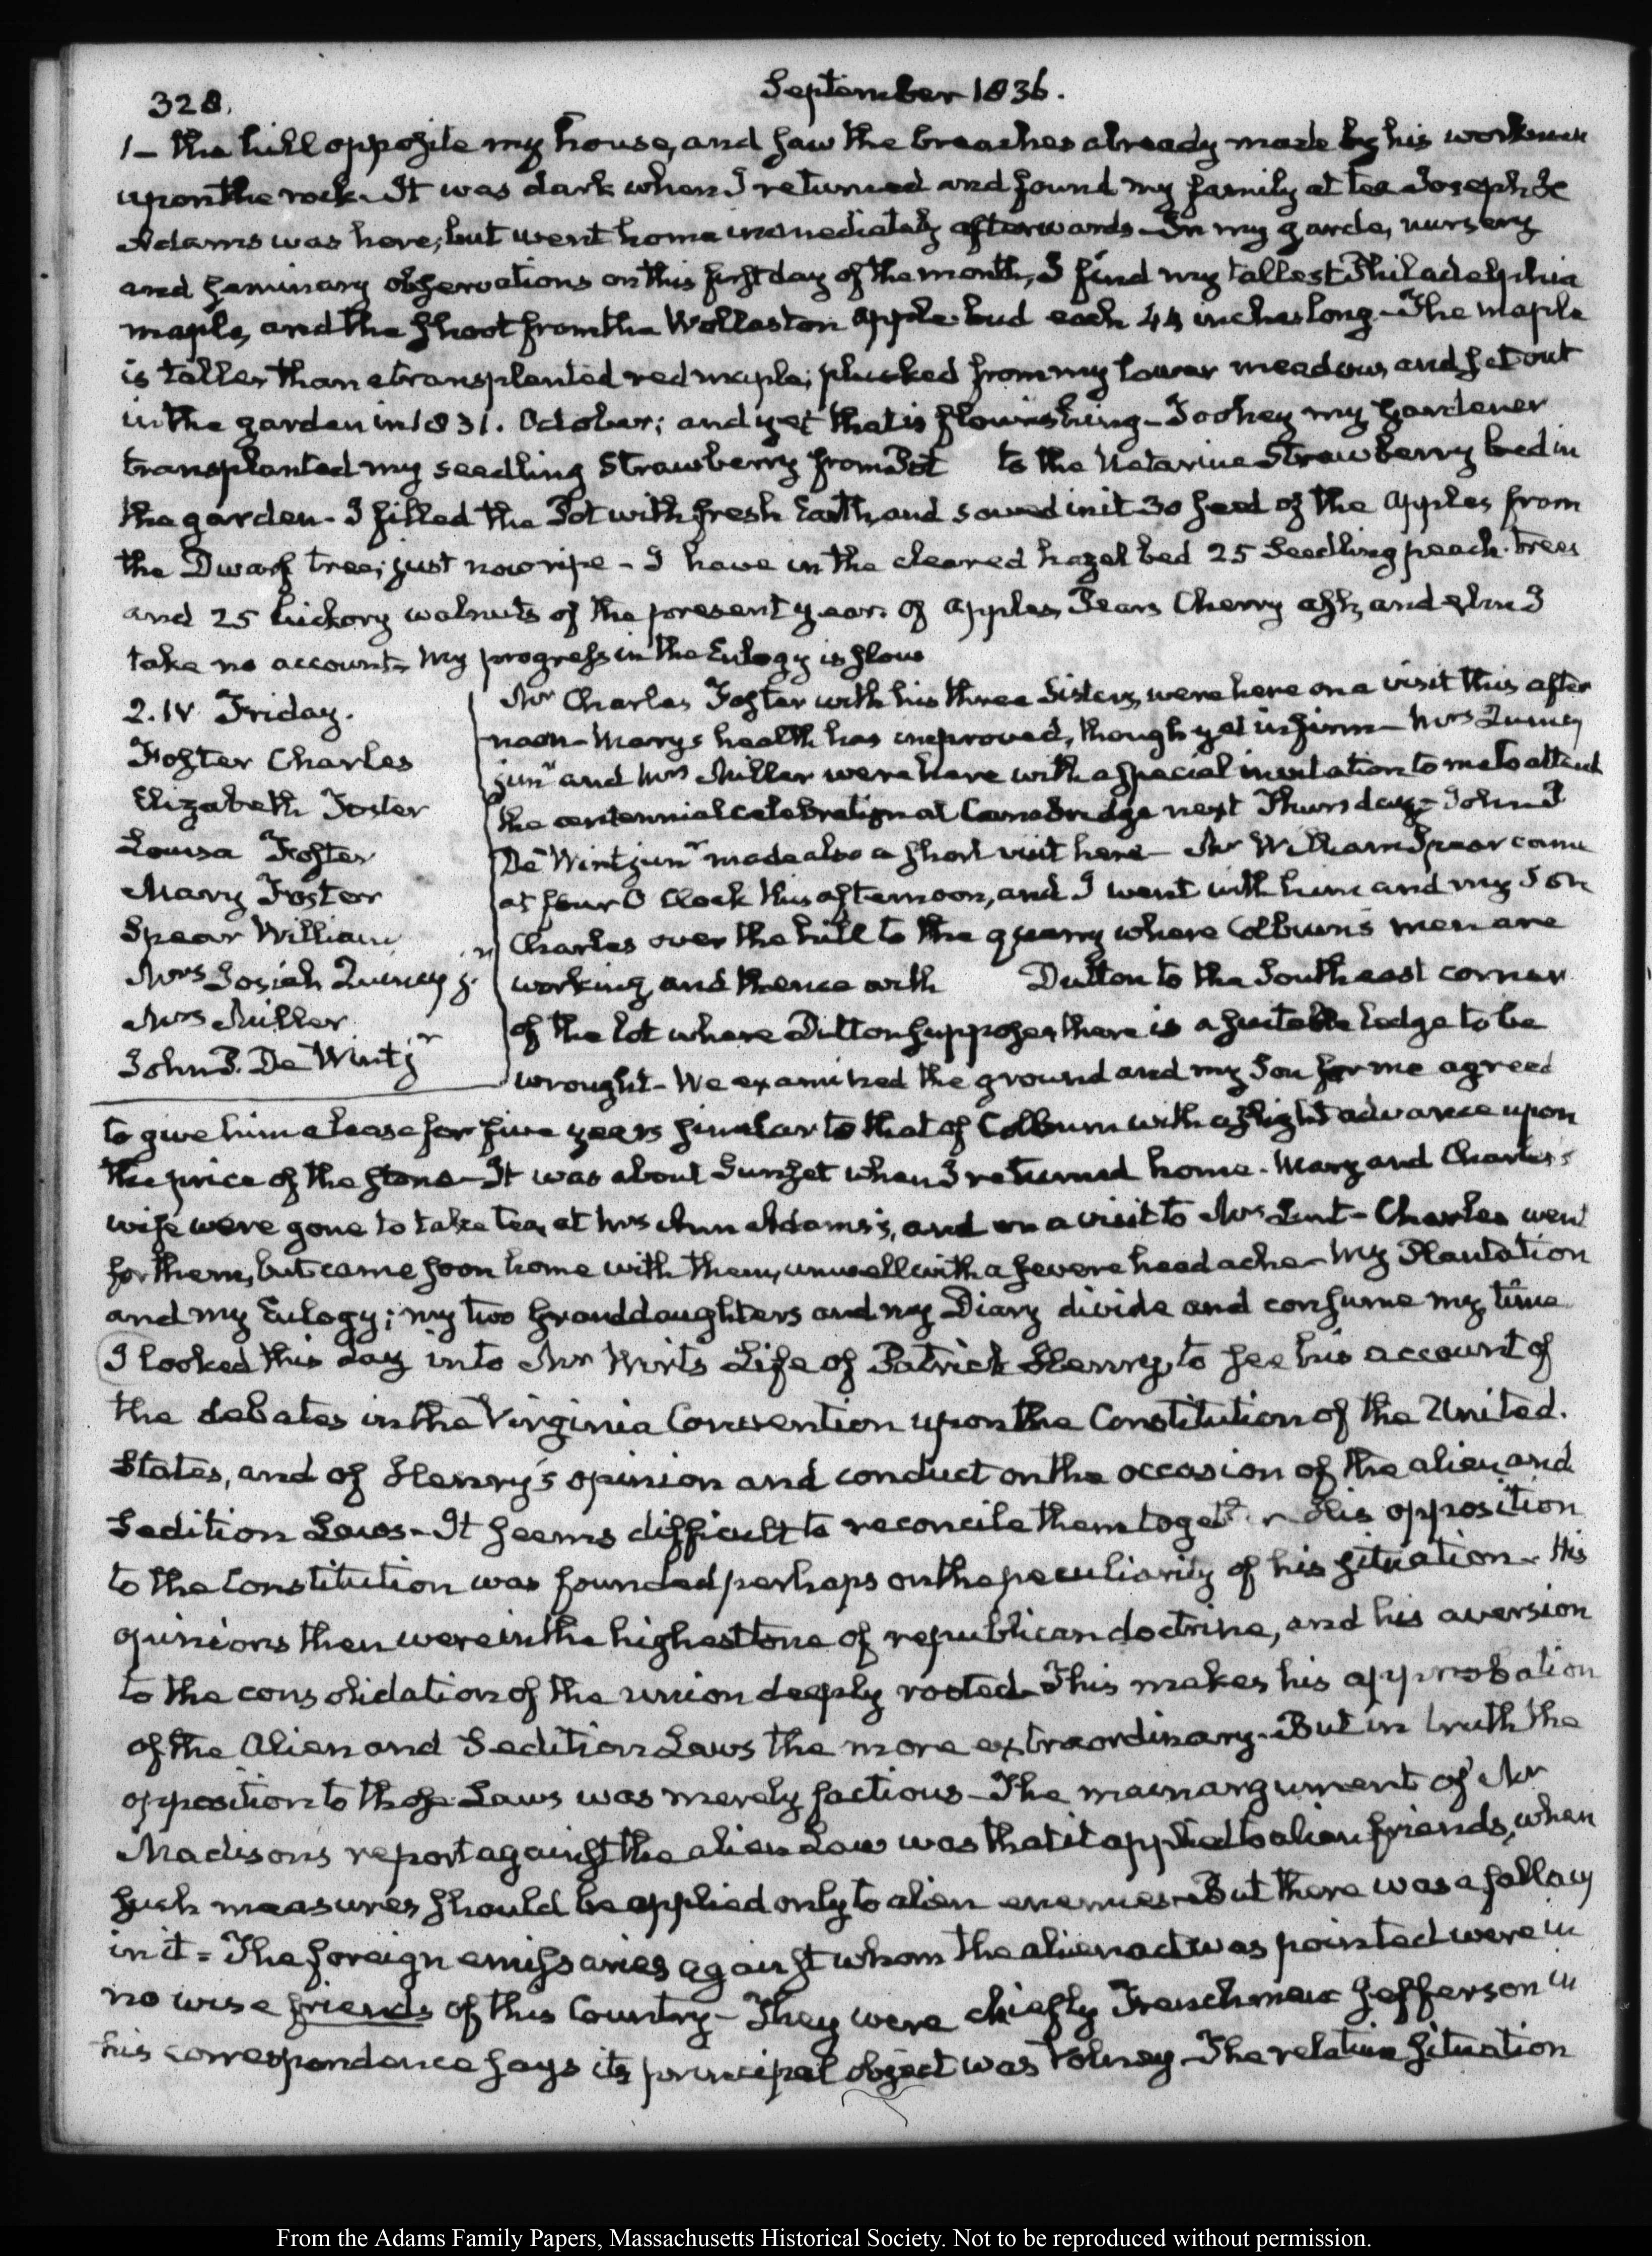 328.
September 1836.
1 — the hill opposite my house, and saw the breaches already made by his workmen
upon the rock. It was dark when I returned and found my family at tea Joseph H
Adams was here; but went home immediately afterwards — In my garden, nursery
and seminary observations on this first day of the month, I find my tallest Philadelphia
maple, and the shoot from the Wollaston apple bud each 44 inches long — The maple
is taller than a transplanted red maple; plucked from my lower meadow, and set out
in the garden in 1831. October; and yet that is flourishing — Toohey my gardener
transplanted my seedling Strawberry from Pot to the Strawberry bed in
the garden — I filled the Pot with fresh Earth, and sowed in it 30 seed of the apples from
the Dwarf tree; just now ripe — I have in the cleared hazel bed 25 Seedling peach trees
and 25 hickory walnuts of the present year. of apples, Pears, Cherry ash, and elm I
take no account — My progress in the Eulogy is slow
2. IV Friday.
Foster Charles
Elizabeth Foster
Louisa Foster
Mary Foster
Spear William
Mrs Josiah Quincy jr.
Mrs Miller
John P. De Wint jr
Mr Charles Foster with his three Sisters, were here on a visit this after
noon — Mary's health has improved, though yet infirm — Mrs Quincy
junr and Mrs Miller were here with a special invitation to me to attend
the centennial celebration at Cambridge next Thursday — John P
De Wint junr made also a short visit here — Mr William Spear came
at four O Clock this afternoon, and I went with him and my Son
Charles over the hill to the quarry where Colburn's men are
working, and thence with Dutton to the Southeast corner
of the lot where Dutton supposes there is a suitable ledge to be
wrought — We examined the ground and my Son for me agreed
to give him a lease for five years similar to that of Colburn with a slight advance upon
the price of the stone — It was about Sunset when I returned home. Mary and Charles's
wife were gone to take tea, at Mrs Ann Adams's, and on a visit to Mrs Lunt — Charles went
for them, but came soon home with them, unwell with a severe headache — My Plantation
and my Eulogy; my two Granddaughters and my Diary divide and consume my time
I looked this day into Mr Wirt's Life of Patrick Henry, to see his account of
the debates in the Virginia Convention upon the Constitution of the United.
States, and of Henry's opinion and conduct on the occasion of the alien and
Sedition Laws — It seems difficult to reconcile them together — His opposition
to the Constitution was founded perhaps on the peculiarity of his situation — His
opinions then were in the highest tone of republican doctrine, and his aversion
to the consolidation of the union deeply rooted — This makes his approbation
of the Alien and Sedition Laws the more extraordinary — But in truth the
opposition to those Laws was merely factious — The main argument of Mr
Madison's report against the alien Law was that it applied to alien friends, when
such measures should be applied only to alien enemies — But there was a fallacy
in it = The foreign emissaries against whom the alien act was pointed were in
no wise friends of this Country — They were chiefly Frenchmen Jefferson in
his correspondence says its principal object was Volney — The relative situation
From the Adams Family Papers, Massachusetts Historical Society. Not to be reproduced without permission.